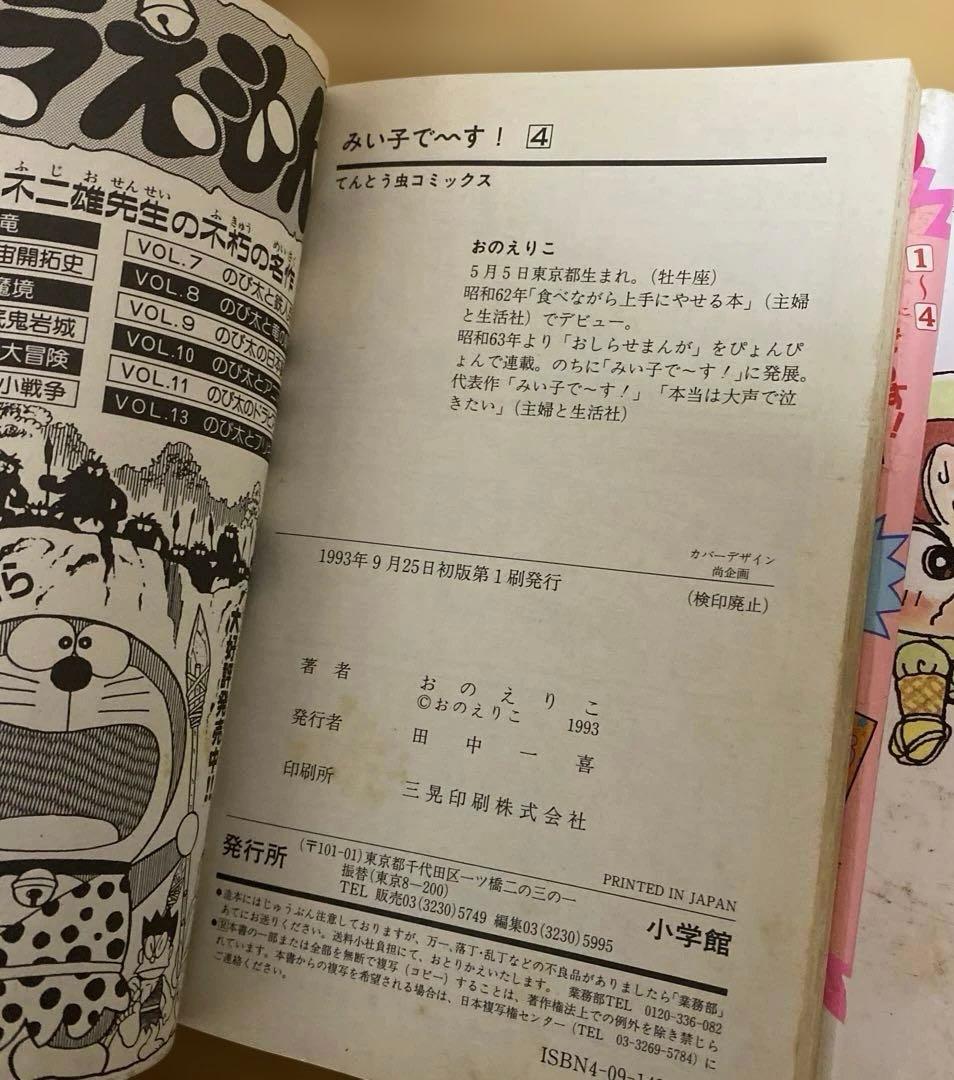 ラえもん
ふじおせんせいのふきゅうのめいさく
不二雄先生の不朽の名作
竜
宙開拓史
魔境
底鬼岩城
大冒険
小戦争
VOL.7 のび太と鉄人
VOL.8 のび太と竜の
VOL.9 のび太の日本
VOL.10 のび太とアニ
VOL.11 のび太のドラ
VOL.13 のび太とブリ
ら
大好評発売中!!
みい子で〜〜す! 4
てんとう虫コミックス
おのえりこ
5月5日東京都生まれ。(牡牛座)
昭和62年「食べながら上手にやせる本」(主婦
と生活社)でデビュー。
昭和63年より「おしらせまんが」をぴょんぴ
ょんで連載。のちに「みい子で〜す!」に発展。
代表作「みい子で〜す!」「本当は大声で泣
きたい」(主婦と生活社)
カバーデザイン
尚企画
1993年9月25日初版第1刷発行
(検印廃止)
著者 おのえりこ
©おのえりこ 1993
発行者 田中一喜
印刷所 三晃印刷株式会社
PRINTED IN JAPAN
発行所 (〒101-01)東京都千代田区一ツ橋二の三の一
振替(東京8—200)
TEL 販売03(3230)5749 編集03(3230)5995
小学館
●造本にはじゅうぶん注意しておりますが、万一、落丁・乱丁などの不良品がありましたら「業務部」
あてにお送りください。送料小社負担にて、おとりかえいたします。 業務部TEL 0120-336-082
●Ⓡ本書の一部または全部を無断で複写(コピー)することは、著作権法上での例外を除き禁じら
れています。本書からの複写を希望される場合は、日本複写権センター(TEL 03-3269-5784)に
ご連絡ください。
ISBN4-09-14
1〜4
す!